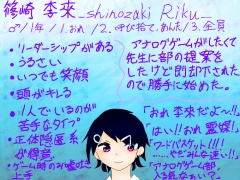 篠崎 李來_shinozaki Riku_
♂/1年/1.おれ/2.呼び捨て、あんた/3.全員
・リーダーシップがある
・うるさい
・いつも笑顔
・頭がキレる
・1人でいるのが
苦手なタイプ
・正体隠匿系
が得意
・ゲーム時のみ嘘吐き
上手
アナログゲームがしたくて
先生に部の提案を
したけど即却下された
ので勝手に始めた。
「おれ李來だよ〜!!」
「はい!!おれ霊媒!」
「ワードバスケット!!!
……やだみんな速い!!」
「アナログゲーム部